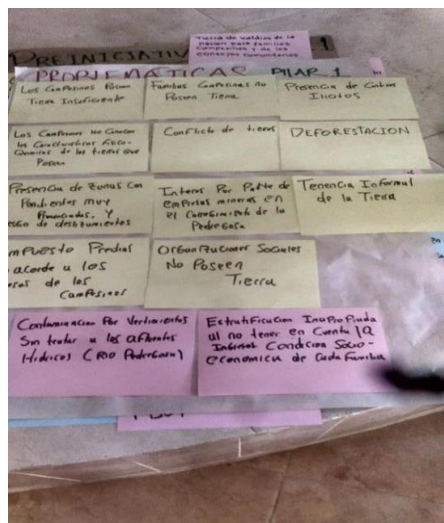 Tierra de valdios de la
nación para familias
Campesinas y de los
consejos comunitarios
PREINICIATIV
1
PROBLEMATICAS PILAR 1
Los Campesinos Poseen
Tierra Insuficiente
Familias Campesinas no
Poseen Tierra
Presencia de Cultivos
Ilicitos
Los Campesinos No Conocen
las Caracteristicas Fisico-
Quimicas de las tierras que
Poseen
Conflicto de tierras
DEFORESTACION
Presencia de Zonas Con
Pendientes muy
Pronunciadas, Y
esgo de deslizamientos
Interes Por Parte de
empresas mineras en
el Corregimiento de la
Pedregosa
Tenencia Informal
de la Tierra
mpuesto Predial
acorde a los
sos de los
Campesinos
Organizaciones Sociales
No Poseen
Tierra
Contaminacion Por Vertimientos
Sin tratar a los afluentes
Hidricos (RIO Pedregosa)
Estratificacion Inapropiada
al no tener en Cuenta la
Condicion Socio-
economica de Cada Familia